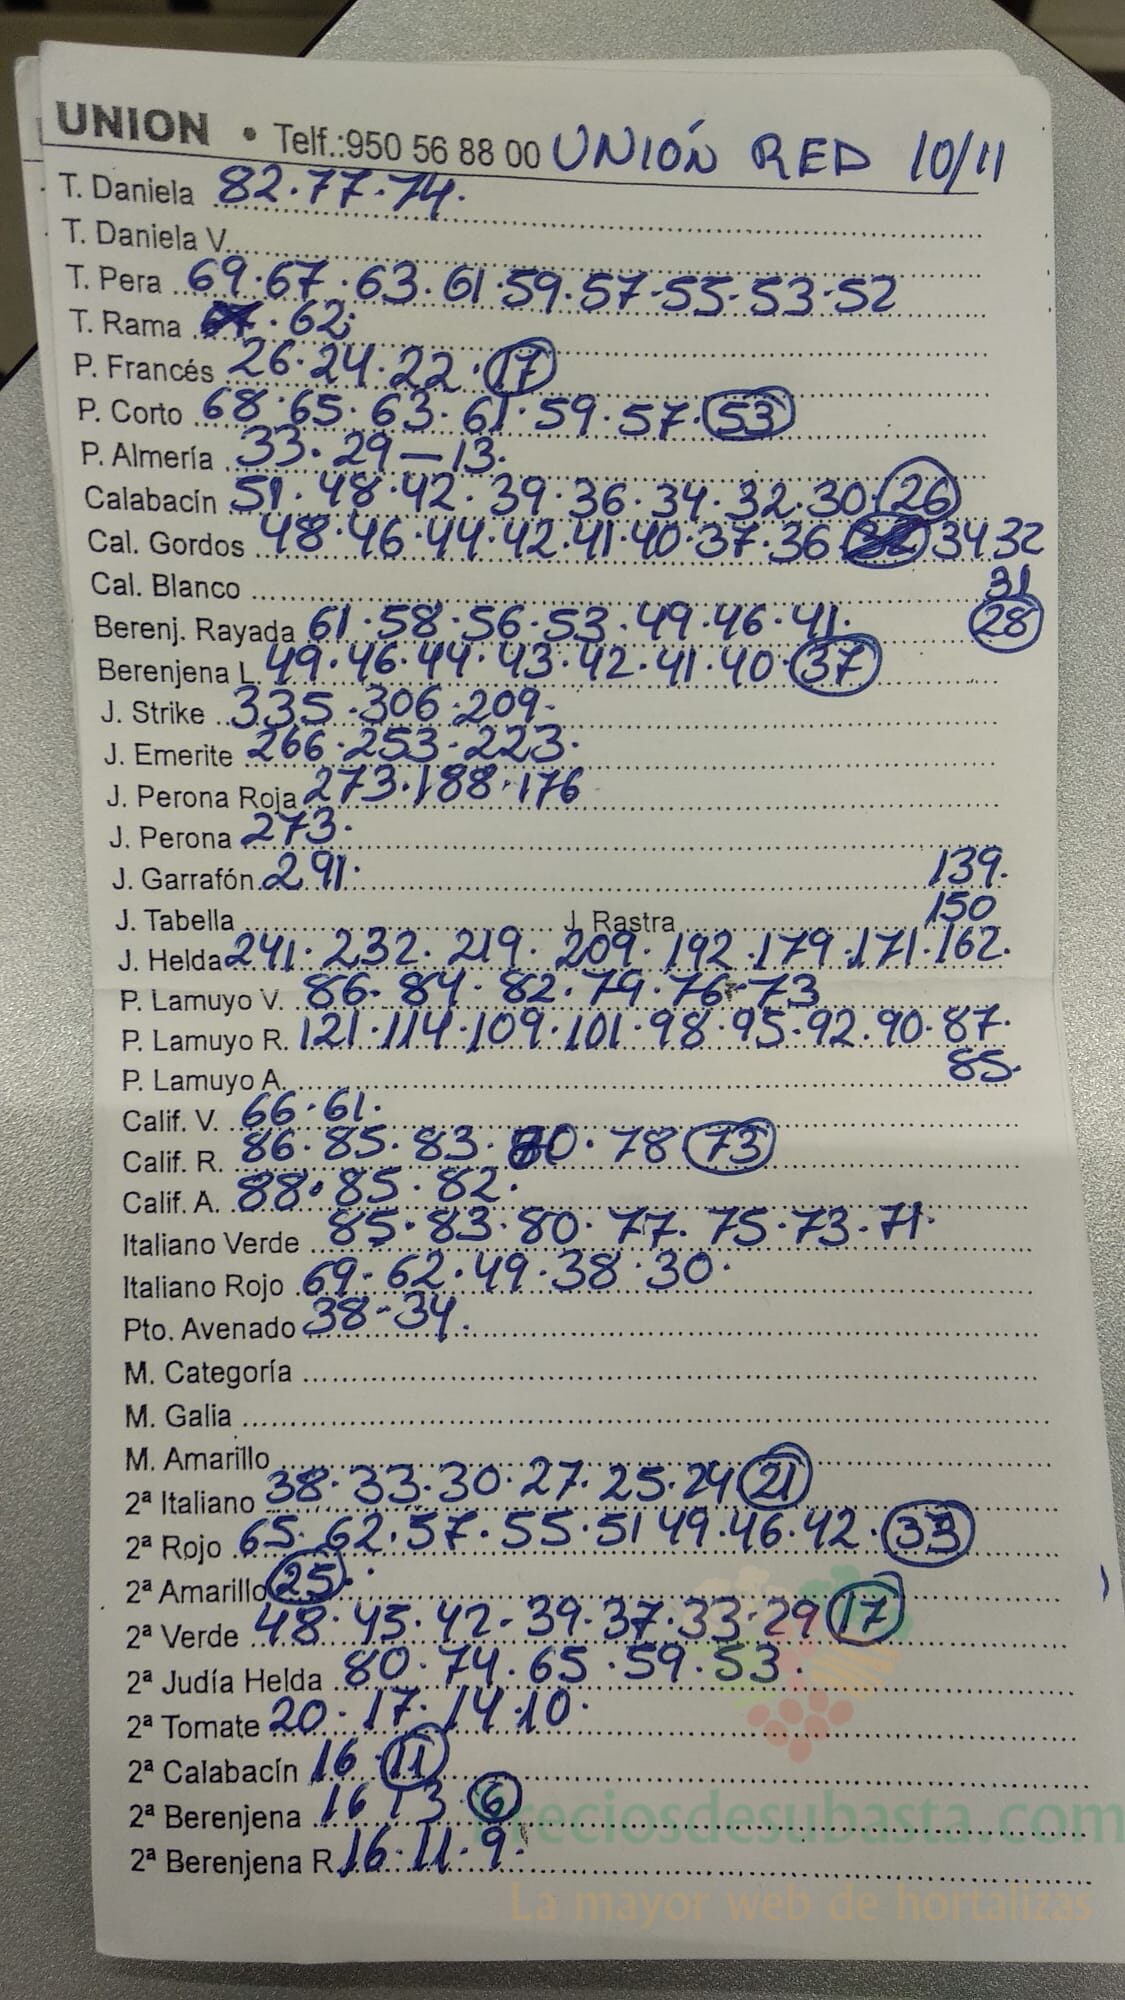 UNION • Telf.:950 56 88 00 UNIÓN RED 10/11
T. Daniela 82·77·74·
T. Daniela V.
T. Pera 69·67·63·61·59·57-55-53·52
T. Rama ·62·
P. Francés 26·24·22·17
P. Corto 68·65·63·61·59·57·53
P. Almería 33·29—13·
Calabacín 51·48·42·39·36·34·32·30·26
Cal. Gordos 48·46·44·42·41·40·37·36 34 32
Cal. Blanco 31
Berenj. Rayada 61·58·56·53·49·46·41· 28
Berenjena L. 49·46·44·43·42·41·40·37
J. Strike 335·306·209-
J. Emerite 266·253-223·
J. Perona Roja 273·188·176
J. Perona 273·
J. Garrafón 291· 139·
J. Tabella J. Rastra 150
J. Helda 241·232·219·209·192·179·171·162·
P. Lamuyo V. 86·84·82·79·76-73
P. Lamuyo R. 121·114·109·101·98·95·92·90·87·
P. Lamuyo A. 85·
Calif. V. 66·61·
Calif. R. 86·85·83·80·78 73
Calif. A. 88·85·82·
Italiano Verde 85·83·80·77·75·73·71·
Italiano Rojo 69-62·49·38·30·
Pto. Avenado 38-34·
M. Categoría
M. Galia
M. Amarillo
2ª Italiano 38·33·30·27·25·24 21
2ª Rojo 65·62·57·55·51 49·46·42·33
2ª Amarillo 25·
2ª Verde 48·45·42-39·37·33·29 17
2ª Judía Helda 80·74·65·59·53·
2ª Tomate 20·17·14·10·
2ª Calabacín 16·11
2ª Berenjena 16 13·6
preciosdesubasta.com
2ª Berenjena R. 16·11·9·
La mayor web de hortalizas